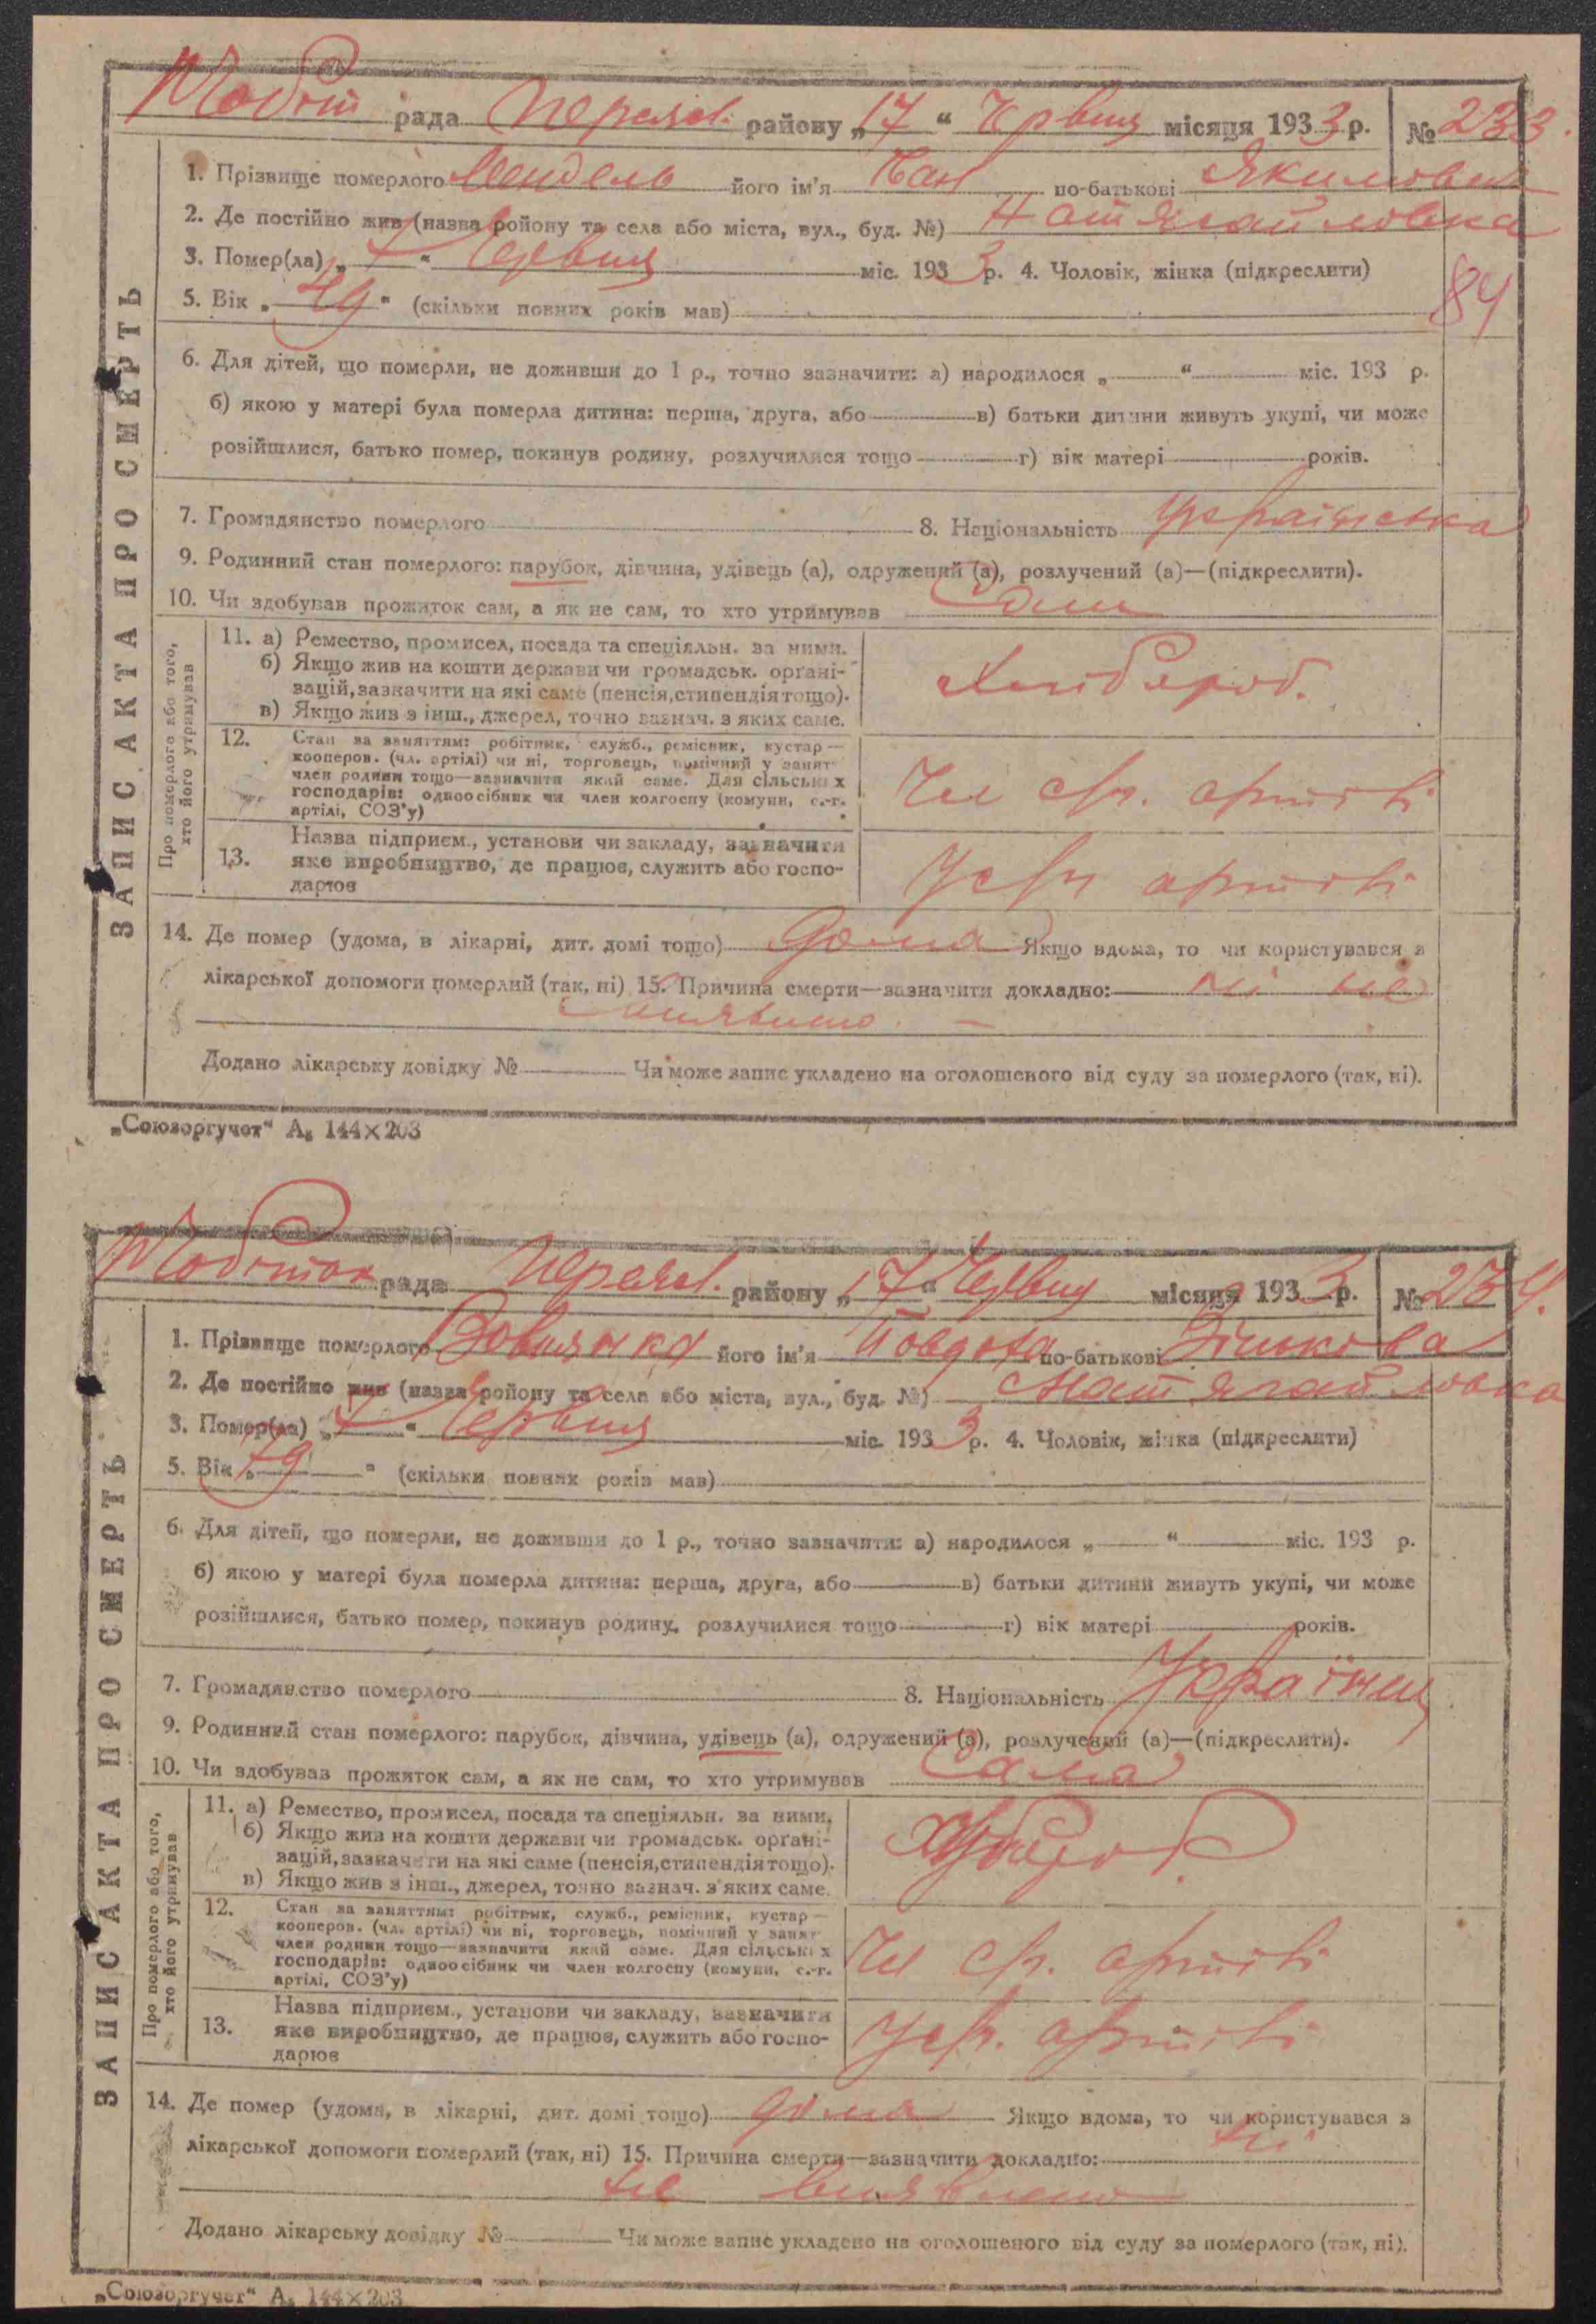 рада Переясл. району „17“ Червня місяця 1933 р. № 233.
1. Прізвище померлого його ім'я по-батькові Якимович
2. Де постійно жив (назва ройону та села або міста, вул., буд. №)
3. Помер(ла) „7“ Червня міс. 1933 р. 4. Чоловік, жінка (підкреслити)
84
5. Вік „ “ (скільки повних років мав)
6. Для дітей, що померли, не доживши до 1 р., точно зазначити: а) народилося „ “ міс. 193 р.
б) якою у матері була померла дитина: перша, друга, або в) батьки дитини живуть укупі, чи може
розійшлися, батько помер, покинув родину, розлучилися тощо г) вік матері років.
7. Громадянство померлого 8. Національність Українська
9. Родинний стан померлого: парубок, дівчина, удівець (а), одружений (а), розлучений (а)—(підкреслити).
10. Чи здобував прожиток сам, а як не сам, то хто утримував Сам
ЗАПИС АКТА ПРО СМЕРТЬ
Про померлого або того, хто його утримував
11. а) Ремество, промисел, посада та спеціяльн. за ними.
б) Якщо жив на кошти держави чи громадськ. орґані-
зацій, зазначити на які саме (пенсія, стипендія тощо).
в) Якщо жив з інш., джерел, точно зазнач. з яких саме.
Хлібороб.
12. Стан за заняттям: робітник, служб., ремісник, кустар—
кооперов. (чл. артілі) чи ні, торговець, помічний у занят
член родини тощо—зазначити який саме. Для сільських
господарів: одноосібник чи член колгоспу (комуни, с.-г.
артілі, СОЗ'у)
Чл с/г. артілі
13. Назва підприєм., установи чи закладу, зазначити
яке виробництво, де працює, служить або госпо-
дарює
У с/г артілі
14. Де помер (удома, в лікарні, дит. домі тощо) дома Якщо вдома, то чи користувався з
лікарської допомоги померлий (так, ні) 15. Причина смерти—зазначити докладно: ні не
виявлено. —
Додано лікарську довідку № Чи може запис укладено на оголошеного від суду за померлого (так, ні).
„Союзоргучет“ А₅ 144×203
рада Переясл. району „17“ Червня місяця 1933 р. № 234.
1. Прізвище померлого його ім'я Йовдоха по-батькові
2. Де постійно жив (назва ройону та села або міста, вул., буд. №)
3. Помер(ла) „7“ Червня міс. 1933 р. 4. Чоловік, жінка (підкреслити)
5. Вік „79“ (скільки повних років мав)
6. Для дітей, що померли, не доживши до 1 р., точно зазначити: а) народилося „ “ міс. 193 р.
б) якою у матері була померла дитина: перша, друга, або в) батьки дитини живуть укупі, чи може
розійшлися, батько помер, покинув родину, розлучилися тощо г) вік матері років.
7. Громадянство померлого 8. Національність
9. Родинний стан померлого: парубок, дівчина, удівець (а), одружений (а), розлучений (а)—(підкреслити).
10. Чи здобував прожиток сам, а як не сам, то хто утримував Сама
ЗАПИС АКТА ПРО СМЕРТЬ
Про померлого або того, хто його утримував
11. а) Ремество, промисел, посада та спеціяльн. за ними.
б) Якщо жив на кошти держави чи громадськ. орґані-
зацій, зазначити на які саме (пенсія, стипендія тощо).
в) Якщо жив з інш., джерел, точно зазнач. з яких саме.
12. Стан за заняттям: робітник, служб., ремісник, кустар—
кооперов. (чл. артілі) чи ні, торговець, помічний у занят
член родини тощо—зазначити який саме. Для сільських
господарів: одноосібник чи член колгоспу (комуни, с.-г.
артілі, СОЗ'у)
Чл с/г. артілі
13. Назва підприєм., установи чи закладу, зазначити
яке виробництво, де працює, служить або госпо-
дарює
У с/г. артілі
14. Де помер (удома, в лікарні, дит. домі тощо) дома Якщо вдома, то чи користувався з
лікарської допомоги померлий (так, ні) 15. Причина смерти—зазначити докладно: ні
не виявлено
Додано лікарську довідку № Чи може запис укладено на оголошеного від суду за померлого (так, ні).
„Союзоргучет“ А₅ 144×203